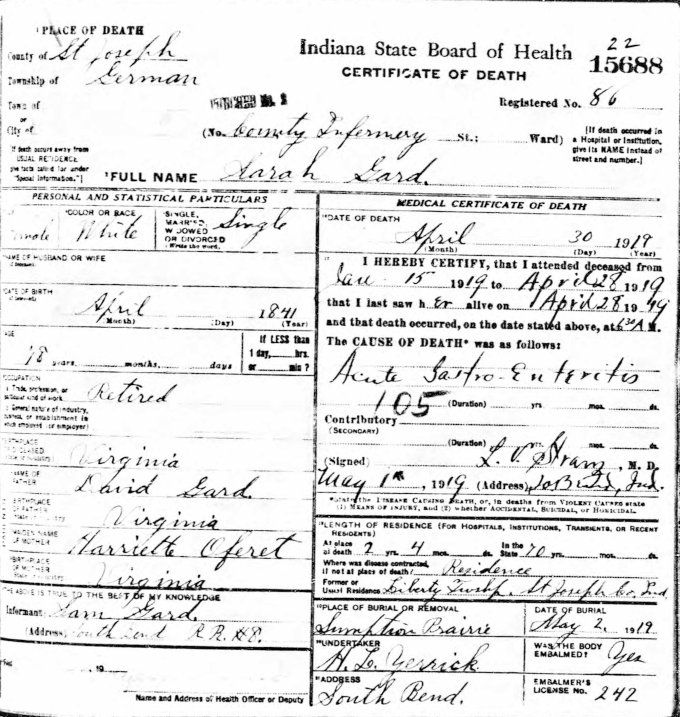 PLACE OF DEATH
County of St Joseph
Township of German
Town of
or
City of
Indiana State Board of Health
CERTIFICATE OF DEATH
22
15688
Registered No. 86
(No. County Infermery St.; Ward)
[If death occurred in a Hospital or Institution, give its NAME instead of street and number.]
[If death occurs away from USUAL RESIDENCE give facts called for under "Special Information."]
FULL NAME Sarah Gard.
PERSONAL AND STATISTICAL PARTICULARS
COLOR OR RACE White
SINGLE, MARRIED, WIDOWED OR DIVORCED Single
(Write the word.)
NAME OF HUSBAND OR WIFE
DATE OF BIRTH
April 1841
(Month) (Day) (Year)
AGE
78 years, months, days
If LESS than
1 day, hrs.
or min?
OCCUPATION
Trade, profession, or particular kind of work Retired
General nature of industry, business, or establishment in which employed (or employer)
BIRTHPLACE
Virginia
NAME OF FATHER David Gard.
BIRTHPLACE OF FATHER Virginia
MAIDEN NAME OF MOTHER Harriette Oferet
BIRTHPLACE OF MOTHER Virginia
THE ABOVE IS TRUE TO THE BEST OF MY KNOWLEDGE
Informant Sam Gard.
(Address) South Bend R.R.
, 19
Name and Address of Health Officer or Deputy
MEDICAL CERTIFICATE OF DEATH
DATE OF DEATH
April 30 1919
(Month) (Day) (Year)
I HEREBY CERTIFY, that I attended deceased from
Jan 15 1919 to April 28 1919
that I last saw her alive on April 28 1919
and that death occurred, on the date stated above, at M.
The CAUSE OF DEATH* was as follows:
Acute Gastro-Enteritis
105
(Duration) yrs. mos. ds.
Contributory
(SECONDARY)
(Duration) yrs. mos. ds.
(Signed) , M. D.
May 1st, 1919 (Address) So Bend, Ind.
*State the DISEASE CAUSING DEATH, or, in deaths from VIOLENT CAUSES state
(1) MEANS OF INJURY, and (2) whether ACCIDENTAL, SUICIDAL, or HOMICIDAL.
LENGTH OF RESIDENCE (FOR HOSPITALS, INSTITUTIONS, TRANSIENTS, OR RECENT RESIDENTS)
At place of death 2 yrs. 4 mos. ds. In the State 70 yrs. mos. ds.
Where was disease contracted, if not at place of death? Residence
Former or Usual Residence Liberty Twshp. St Joseph Co, Ind.
PLACE OF BURIAL OR REMOVAL
Sumption Prairie
DATE OF BURIAL
May 2, 1919
UNDERTAKER
H. L. Yerrick
WAS THE BODY EMBALMED? Yes
ADDRESS
South Bend.
EMBALMER'S LICENSE NO. 242